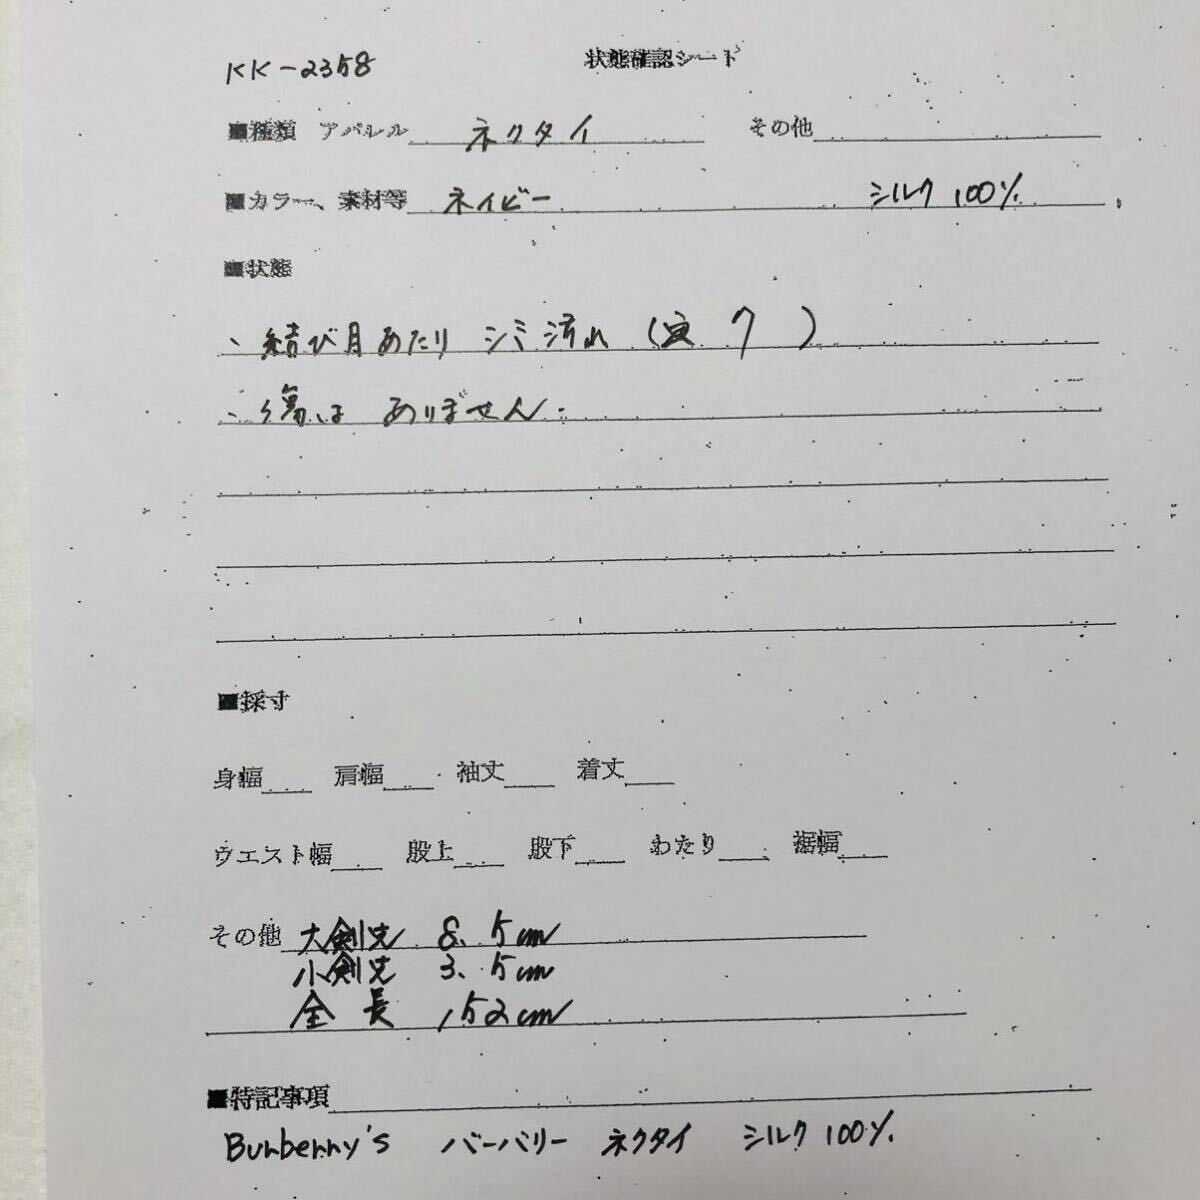 KK-2358 状態確認シート
■種類 アパレル ネクタイ その他
■カラー、素材等 ネイビー シルク100%
■状態
、結び目あたりシミ汚れ(写 7 )
、傷は ありません.
■採寸
身幅 肩幅 袖丈 着丈
ウエスト幅 股上 股下 わたり 裾幅
その他 大剣先 8.5cm
小剣先 3.5cm
全 長 152cm
■特記事項
Burberry's バーバリー ネクタイ シルク100%